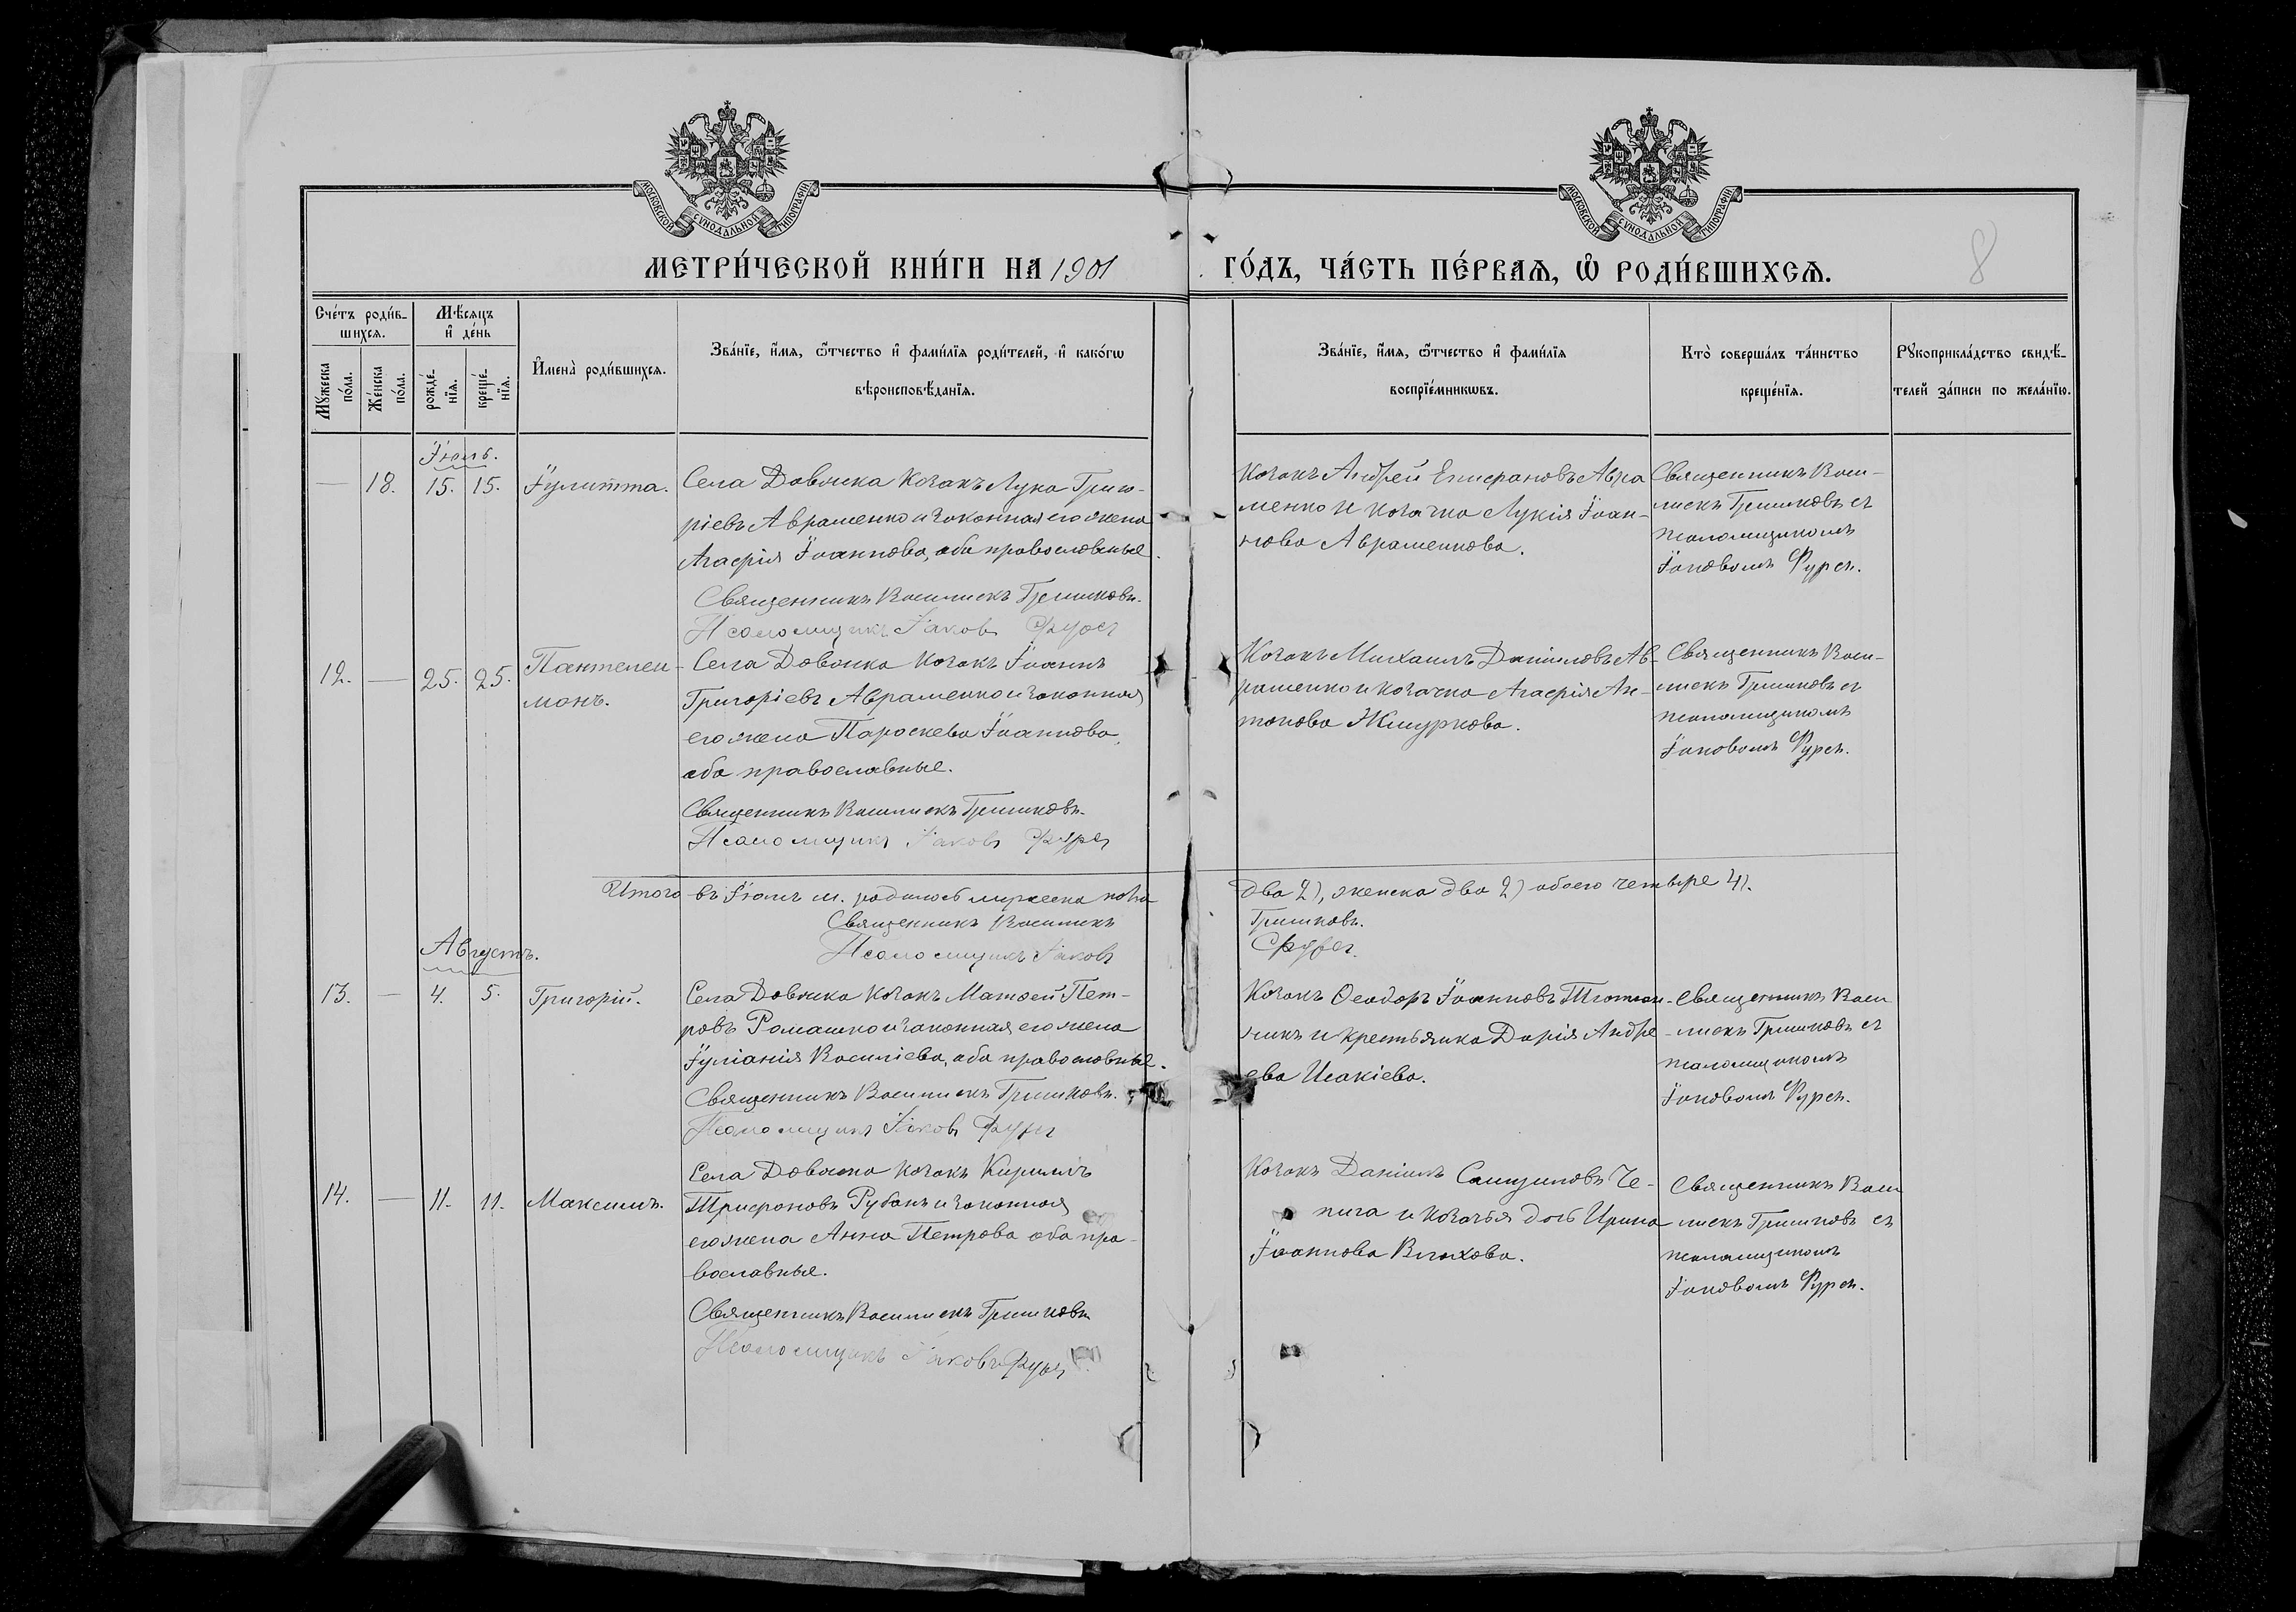 МОСКОВСКОЙ СѴНОДАЛЬНОЙ ТИПОГРАФІИ
МОСКОВСКОЙ СѴНОДАЛЬНОЙ ТИПОГРАФІИ
МЕТРИ́ЧЕСКОЙ КНИ́ГИ НА 1901
ГО́ДЪ, ЧА́СТЬ ПЕ́РВАЯ, Ѡ҆ РОДИ́ВШИХСѦ.
8
Сче́тъ роди́в-
шихсѧ.
Мѣ́сѧцъ
и҆ де́нь
Мꙋ́жеска
по́ла.
Же́нска
по́ла.
рожде́-
нїѧ.
креще́-
нїѧ.
И҆мена̀ роди́вшихсѧ.
Зва́нїе, и҆́мѧ, ѻ҆́тчество и҆ фами́лїѧ роди́телей, и҆ како́гѡ
вѣроисповѣ́данїѧ.
Зва́нїе, и҆́мѧ, ѻ҆́тчество и҆ фами́лїѧ
воспрїе́мникѡвъ.
Кто̀ соверша́лъ та́инство
креще́нїѧ.
Рꙋкоприкла́дство свидѣ́-
телей за́писи по жела́нїю.
Іюль.
— 18. 15. 15. Іулитта.
Села Довжика козакъ Лука Григо-
ріевъ Авраменко и законная его жена
Агафія Іоаннова, оба православные.
Священникъ Василискъ Гришковъ.
Псаломщикъ Іаковъ
Козакъ Андрей Епифановъ Авра
менко и козачка Лукія Іоан-
нова Авраменкова.
Священникъ Васи-
лискъ Гришковъ съ
псаломщикомъ
Іаковомъ
12. — 25. 25. Пантелеи-
монъ.
Села Довжика козакъ Іоаннъ
Григоріевъ Авраменко и законная
его жена Параскева Іоаннова,
оба православные.
Священникъ Василискъ Гришковъ.
Псаломщикъ Іаковъ
Козакъ Михаилъ Даніиловъ Ав-
раменко и козачка Агафія Ан-
тонова Жмуркова.
Священникъ Васи-
лискъ Гришковъ съ
псаломщикомъ
Іаковомъ
Итого въ Іюлѣ м. родилось мужеска пола
два 2), женска два 2) обоего четыре 4).
Священникъ Василискъ
Гришковъ.
Псаломщикъ Іаковъ
Августъ.
13. — 4. 5. Григорій.
Села Довжика козакъ Матѳей Пет-
ровъ Ромашко и законная его жена
Іуліанія Василіева, оба православные.
Священникъ Василискъ Гришковъ.
Псаломщикъ Іаковъ
Козакъ Ѳеодоръ Іоанновъ
никъ и крестьянка Дарія Андре-
ева Исакіева.
Священникъ Васи
лискъ Гришковъ съ
псаломщикомъ
Іаковомъ
14. — 11. 11. Максимъ.
Села Довжика козакъ Кириллъ
Трифоновъ Рубанъ и законная
его жена Анна Петрова оба пра-
вославные.
Священникъ Василискъ Гришковъ
Псаломщикъ Іаковъ
Козакъ Даніилъ Че-
пига и козачья дочь Ирина
Іоаннова
Священникъ Васи
лискъ Гришковъ съ
псаломщикомъ
Іаковомъ